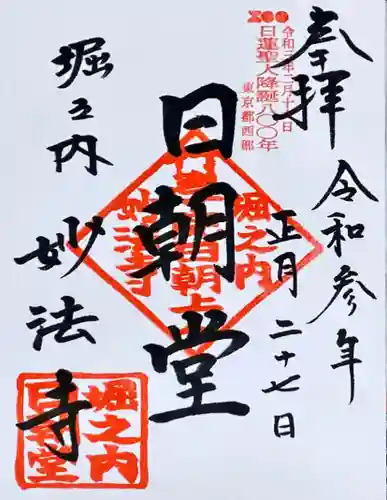 奉拝
令和参年
正月二十七日
800
令和三年二月十六日
日蓮聖人降誕八〇〇年
東京都西部
日朝堂
堀之内
妙法寺
堀之内
妙法寺
堀之内
日朝堂